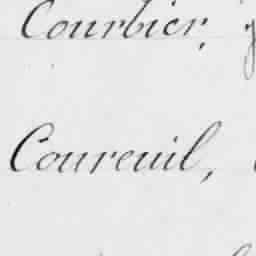 Courbier,
Coureuil,